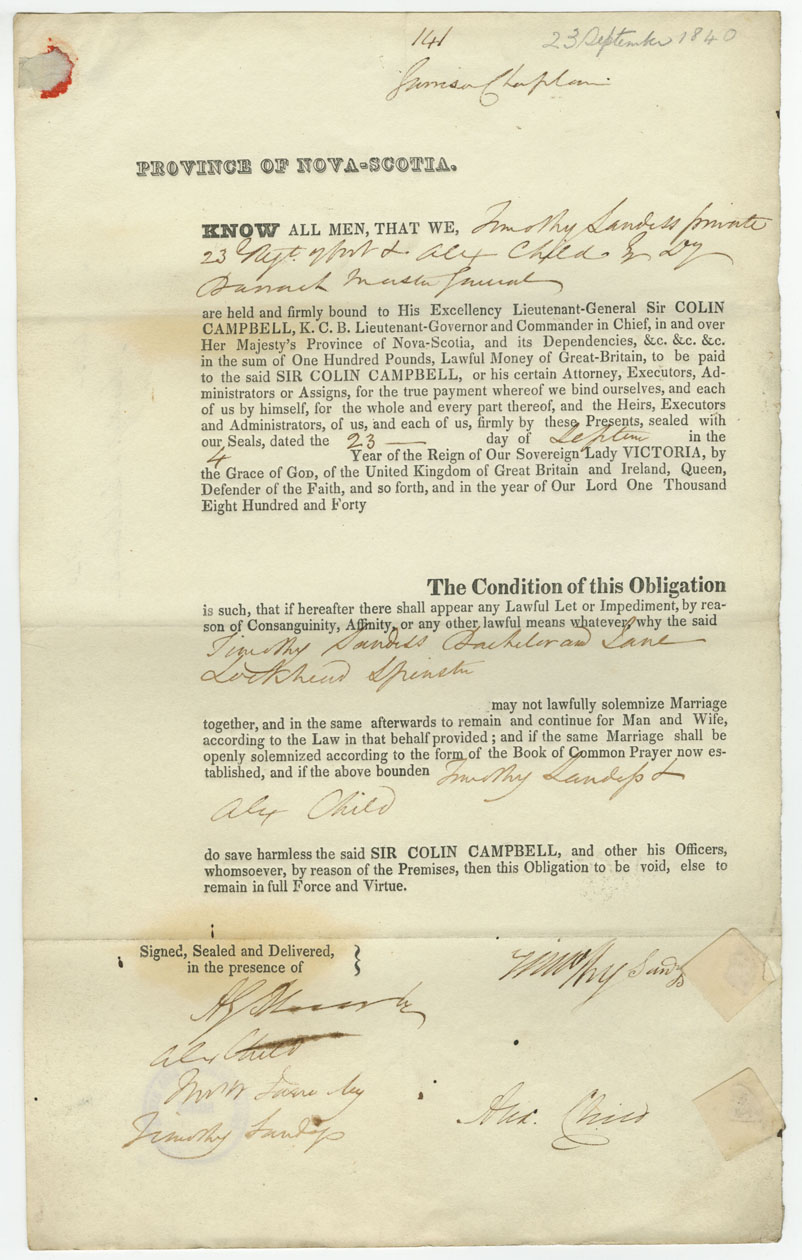 141
23 September 1840
Garrison Chaplain
PROVINCE OF NOVA-SCOTIA.
KNOW ALL MEN, THAT WE, Timothy Landess private
23 Regt. of foot & Alex Child Dy
Barrack Master General
are held and firmly bound to His Excellency Lieutenant-General Sir COLIN
CAMPBELL, K. C. B. Lieutenant-Governor and Commander in Chief, in and over
Her Majesty's Province of Nova-Scotia, and its Dependencies, &c. &c. &c.
in the sum of One Hundred Pounds, Lawful Money of Great-Britain, to be paid
to the said SIR COLIN CAMPBELL, or his certain Attorney, Executors, Ad-
ministrators or Assigns, for the true payment whereof we bind ourselves, and each
of us by himself, for the whole and every part thereof, and the Heirs, Executors
and Administrators, of us, and each of us, firmly by these Presents, sealed with
our Seals, dated the 23 — day of Septem in the
4 Year of the Reign of Our Sovereign Lady VICTORIA, by
the Grace of GOD, of the United Kingdom of Great Britain and Ireland, Queen,
Defender of the Faith, and so forth, and in the year of Our Lord One Thousand
Eight Hundred and Forty
The Condition of this Obligation
is such, that if hereafter there shall appear any Lawful Let or Impediment, by rea-
son of Consanguinity, Affinity, or any other lawful means whatever, why the said
Timothy Landess Bachelor and Jane
Lockhead Spinster
may not lawfully solemnize Marriage
together, and in the same afterwards to remain and continue for Man and Wife,
according to the Law in that behalf provided ; and if the same Marriage shall be
openly solemnized according to the form of the Book of Common Prayer now es-
tablished, and if the above bounden Timothy Landess &
Alex Child
do save harmless the said SIR COLIN CAMPBELL, and other his Officers,
whomsoever, by reason of the Premises, then this Obligation to be void, else to
remain in full Force and Virtue.
Signed, Sealed and Delivered,
in the presence of
Timothy
Alex Child
by
Timothy Landess
Alex. Child